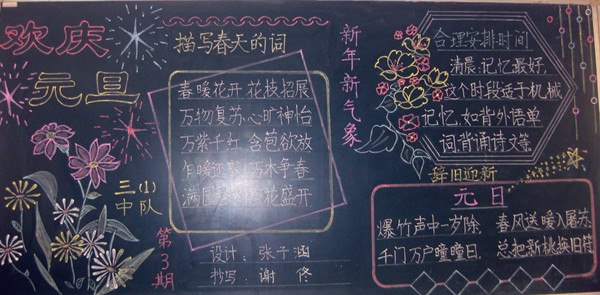 欢庆
元旦
三(1)
中队
第3期
描写春天的词
春暖花开 花枝招展
万物复苏 心旷神怡
万紫千红 含苞欲放
乍暖还寒 万木争春
满园春 百花盛开
设计：张子涵
抄写：谢佟
新年新气象
合理安排时间
清晨:记忆最好,
这个时段适于机械
记忆,如背外语单
词背诵诗文等
辞旧迎新
元日
爆竹声中一岁除, 春风送暖入屠苏.
千门万户曈曈日, 总把新桃换旧符.